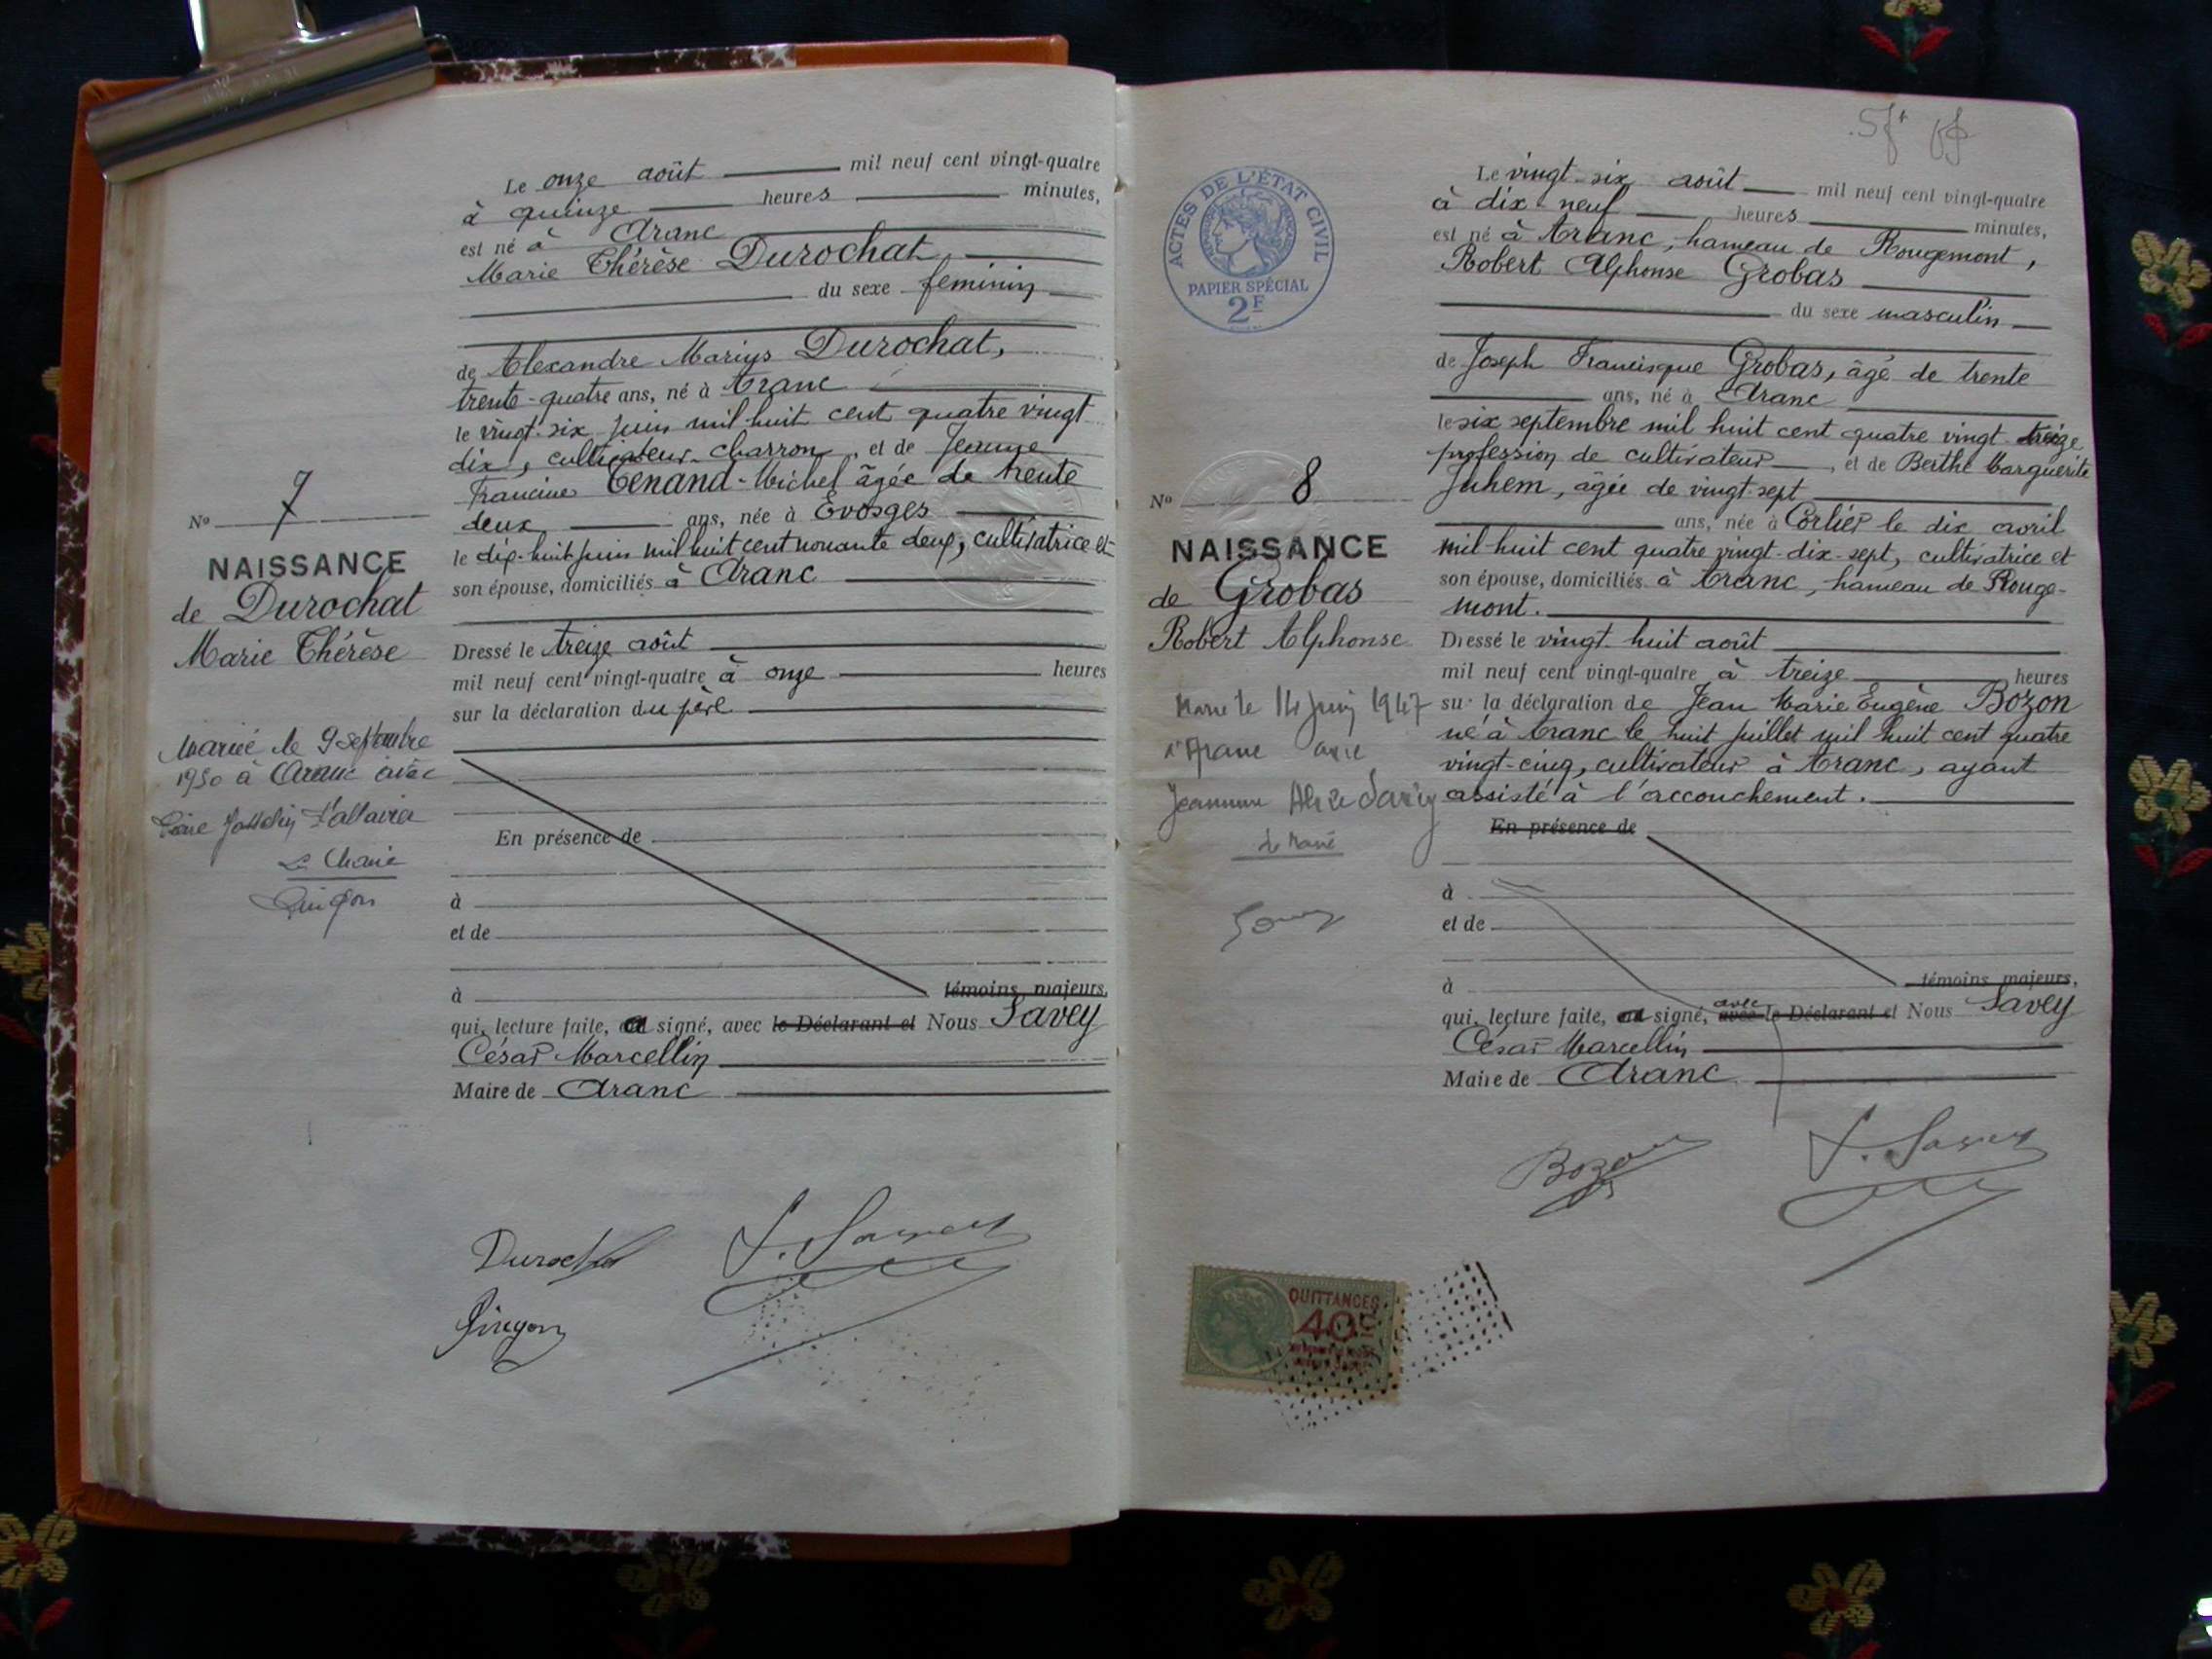 Le onze août mil neuf cent vingt-quatre
à quinze heures minutes,
est né à Aranc
Marie Thérèse Durochat
du sexe feminin
de Alexandre Marius Durochat,
trente-quatre ans, né à Aranc
le vingt-six juin mil huit cent quatre vingt
dix, cultivateur-charron, et de Jeanne
Francine Tenand-Michel âgée de trente
deux ans, née à Evosges
le dix-huit juin mil huit cent nonante deux, cultivatrice et
son épouse, domiciliés à Aranc
Dressé le treize août
mil neuf cent vingt-quatre à onze heures
sur la déclaration du père
En présence de
à
et de
à témoins majeurs,
qui, lecture faite, a signé, avec le Déclarant et Nous Savey
César Marcellin
Maire de Aranc
No 7
NAISSANCE
de Durochat
Marie Thérèse
Mariée le 9 septembre
1950 à Aranc avec
Le Maire
Pingon
Durochat
Pingon
J. Savey
ACTES DE L'ÉTAT CIVIL
PAPIER SPÉCIAL
2F
Le vingt-six août mil neuf cent vingt-quatre
à dix-neuf heures minutes,
est né à Aranc, hameau de Rougemont,
Robert Alphonse Grobas
du sexe masculin
de Joseph Francisque Grobas, âgé de trente
ans, né à Aranc
le six septembre mil huit cent quatre vingt-treize
profession de cultivateur, et de Berthe Marguerite
Juhem, âgée de vingt-sept
ans, née à Corlier le dix avril
mil huit cent quatre vingt-dix-sept, cultivatrice et
son épouse, domiciliés à Aranc, hameau de Rouge-
mont.
Dressé le vingt-huit août
mil neuf cent vingt-quatre à treize heures
sur la déclaration de Jean Marie Eugène Bozon
né à Aranc le huit juillet mil huit cent quatre
vingt-cinq, cultivateur à Aranc, ayant
assisté à l'accouchement.
En présence de
à
et de
à témoins majeurs,
qui, lecture faite, a signé, avec avec le Déclarant et Nous Savey
César Marcellin
Maire de Aranc
No 8
NAISSANCE
de Grobas
Robert Alphonse
Marié le 14 juin 1947
à Aranc avec
Jeannine Alice Savey
Le Maire
Bozon
J. Savey
QUITTANCES
40c